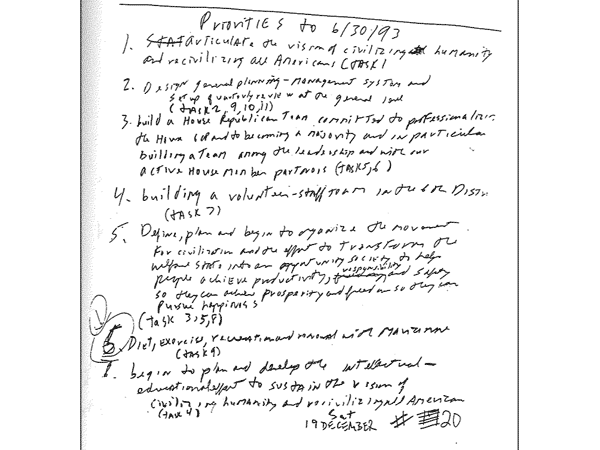 Priorities to 6/30/93
1. articulate the vision of civilizing humanity
and recivilizing all Americans (task 1
2. Design general planning-management system and
set up quarterly review at the general level
(task 2, 9, 10, 11)
3. build a House Republican Team committed to professionalizing
the House GOP and to becoming a majority and in particular
building a Team among the leadership and with our
active House member partners (task 5, 6)
4. building a volunteer-staff team in the 6th Distr.
(task 7)
5. Define, plan and begin to organize the movement
for civilization and the effort to transform the
welfare state into an opportunity society to help
people achieve productivity, responsibility and safety
so they can achieve prosperity and freedom so they can
pursue happiness
(task 3, 5, 8)
6. Diet, exercise, recreation and renewal with Marianne
(task 9)
begin to plan and develop the intellectual-
educational effort to sustain the vision of
civilizing humanity and recivilizing all Americans
(task 4)
Sat
19 DECEMBER # 20